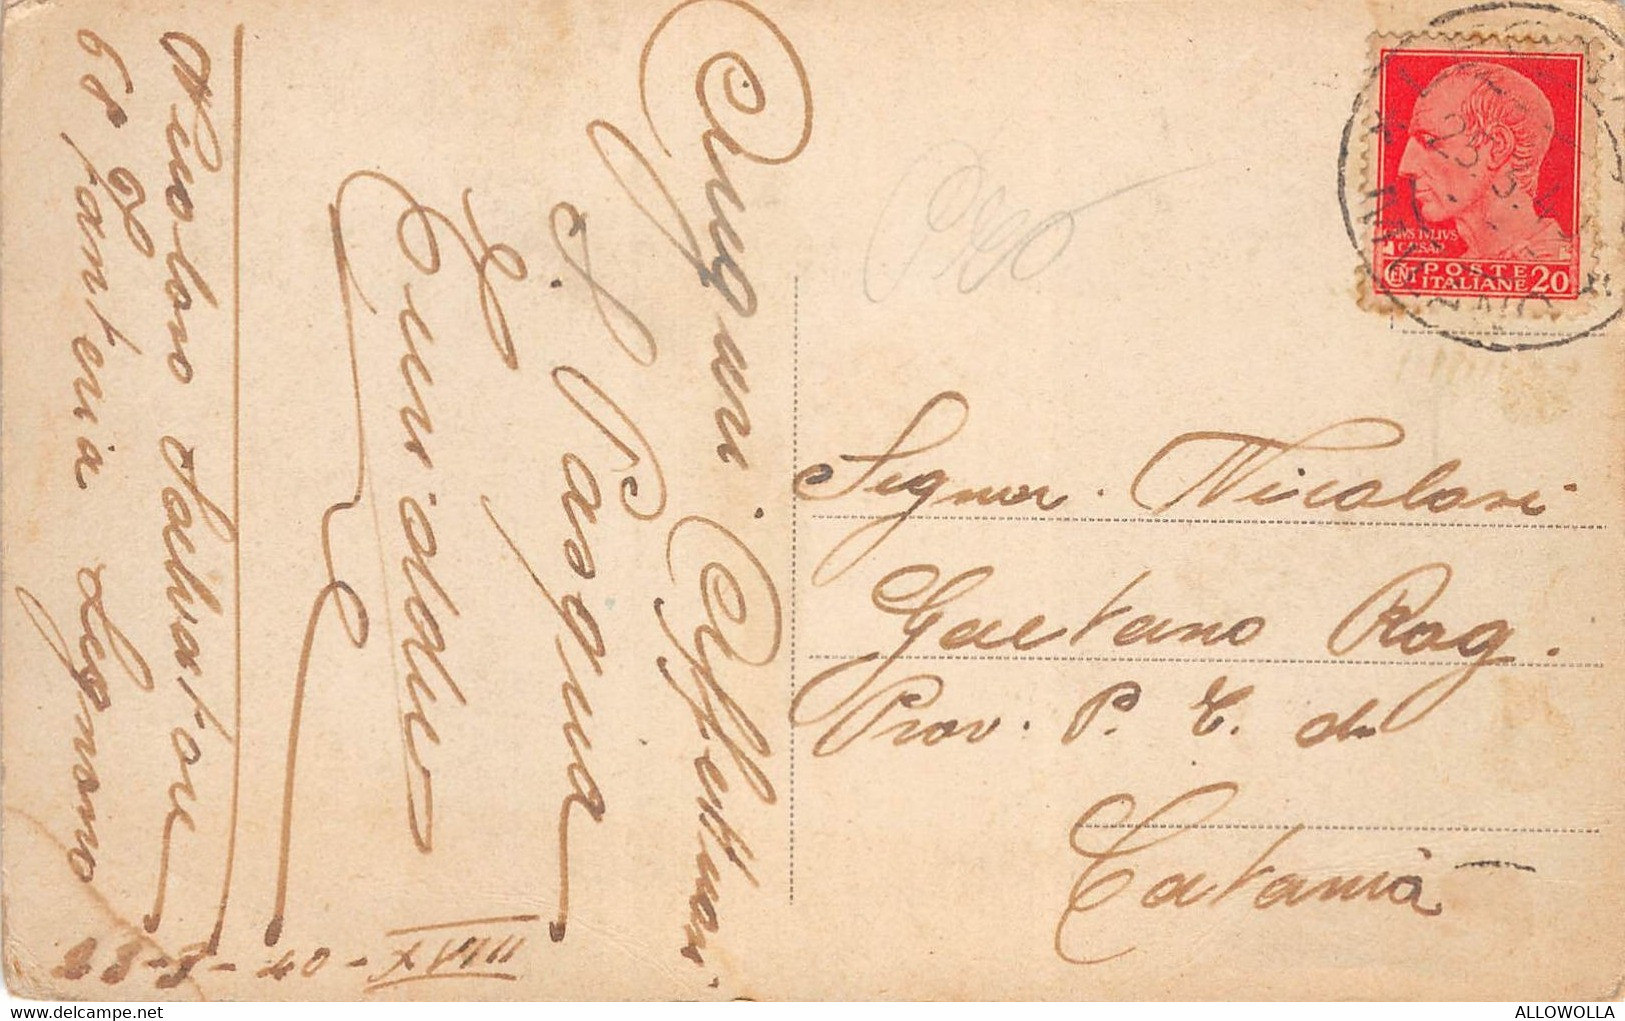 Auguri Affettuosi
S. Pasqua
Turiddu
Nicolosi Salvatore
68° fanteria Legnano
23-3-40-XVIII
Signor. Nicolosi
Gaetano Rag.
Prov. P. T. di
Catania
CAIVS IVLIVS
CAESAR
CENT POSTE ITALIANE 20
23.3.
ALLOWOLLA
delcampe.net